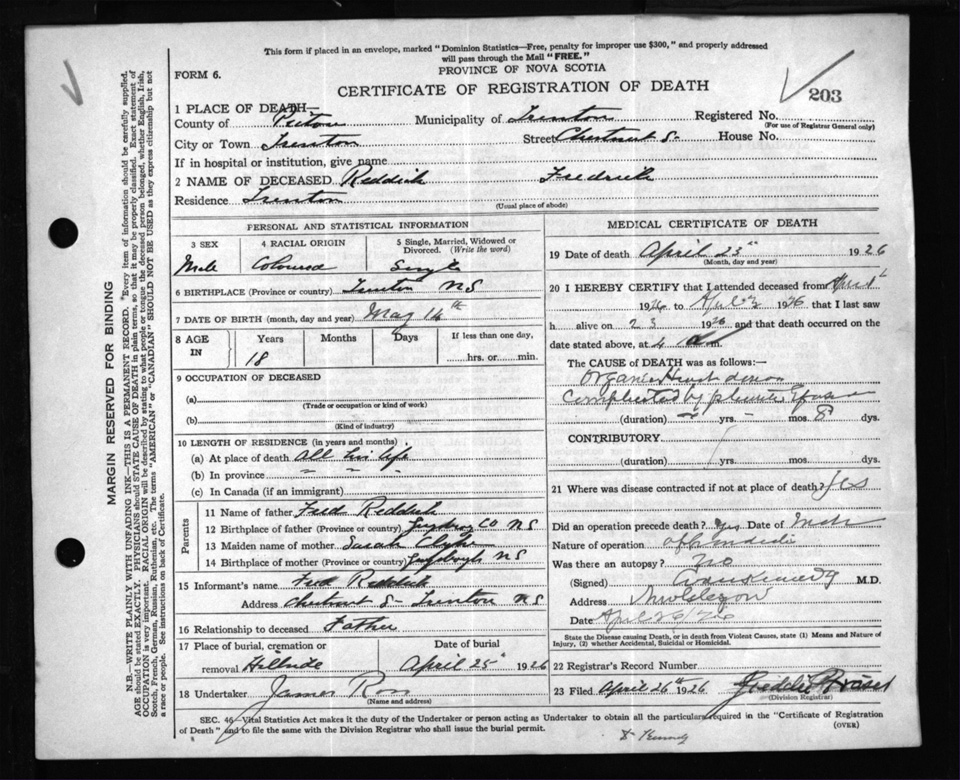 This form if placed in an envelope, marked "Dominion Statistics—Free, penalty for improper use $300," and properly addressed
will pass through the Mail "FREE."
PROVINCE OF NOVA SCOTIA
FORM 6.
CERTIFICATE OF REGISTRATION OF DEATH
203
1 PLACE OF DEATH—
County of Pictou Municipality of Trenton Registered No.
(For use of Registrar General only)
City or Town Trenton Street Chestnut St House No.
If in hospital or institution, give name
2 NAME OF DECEASED Reddick Fredrick
Residence Trenton
(Usual place of abode)
PERSONAL AND STATISTICAL INFORMATION
3 SEX 4 RACIAL ORIGIN 5 Single, Married, Widowed or
Divorced. (Write the word)
Male Coloured Single
6 BIRTHPLACE (Province or country) Trenton NS
7 DATE OF BIRTH (month, day and year) May 14th
8 AGE IN Years Months Days If less than one day,
18 hrs. or min.
9 OCCUPATION OF DECEASED
(a)
(Trade or occupation or kind of work)
(b)
(Kind of industry)
10 LENGTH OF RESIDENCE (in years and months)
(a) At place of death All his life
(b) In province " " "
(c) In Canada (if an immigrant)
Parents
11 Name of father Fred Reddick
12 Birthplace of father (Province or country) Co NS
13 Maiden name of mother Sarah
14 Birthplace of mother (Province or country) NS
15 Informant's name Fred Reddick
Address Chestnut St Trenton NS
16 Relationship to deceased Father
17 Place of burial, cremation or Date of burial
removal Hillside April 25th 1926
18 Undertaker James Ross
(Name and address)
MEDICAL CERTIFICATE OF DEATH
19 Date of death April 23rd 1926
(Month, day and year)
20 I HEREBY CERTIFY that I attended deceased from April 1
1926 to April 1926 that I last saw
h alive on 23 1926 and that death occurred on the
date stated above, at 4 m.
The CAUSE of DEATH was as follows:—
Organic Heart
Complicated by
(duration) yrs. mos. 8 dys.
CONTRIBUTORY
(duration) yrs. mos. dys.
21 Where was disease contracted if not at place of death? Yes
Did an operation precede death? Yes Date of
Nature of operation
Was there an autopsy? No
(Signed) Kennedy M.D.
Address New Glasgow
Date April 26/26
State the Disease causing Death, or in death from Violent Causes, state (1) Means and Nature of
Injury, (2) whether Accidental, Suicidal or Homicidal.
22 Registrar's Record Number
23 Filed April 26th 1926
(Division Registrar)
SEC. 46—Vital Statistics Act makes it the duty of the Undertaker or person acting as Undertaker to obtain all the particulars required in the "Certificate of Registration
of Death" and to file the same with the Division Registrar who shall issue the burial permit.
(OVER)
Dr Kennedy
MARGIN RESERVED FOR BINDING
N.B.—WRITE PLAINLY WITH UNFADING INK—THIS IS A PERMANENT RECORD. Every item of information should be carefully supplied.
AGE should be stated EXACTLY. PHYSICIANS should STATE CAUSE OF DEATH in plain terms, so that it may be properly classified. Exact statement of
OCCUPATION is very important. RACIAL ORIGIN will be described by stating to what people or tongue the deceased person belonged, whether English, Irish,
Scotch, French, German, Russian, Ruthenian, etc. The terms "AMERICAN" or "CANADIAN" SHOULD NOT BE USED as they express citizenship but not
a race or people. See instructions on back of Certificate.